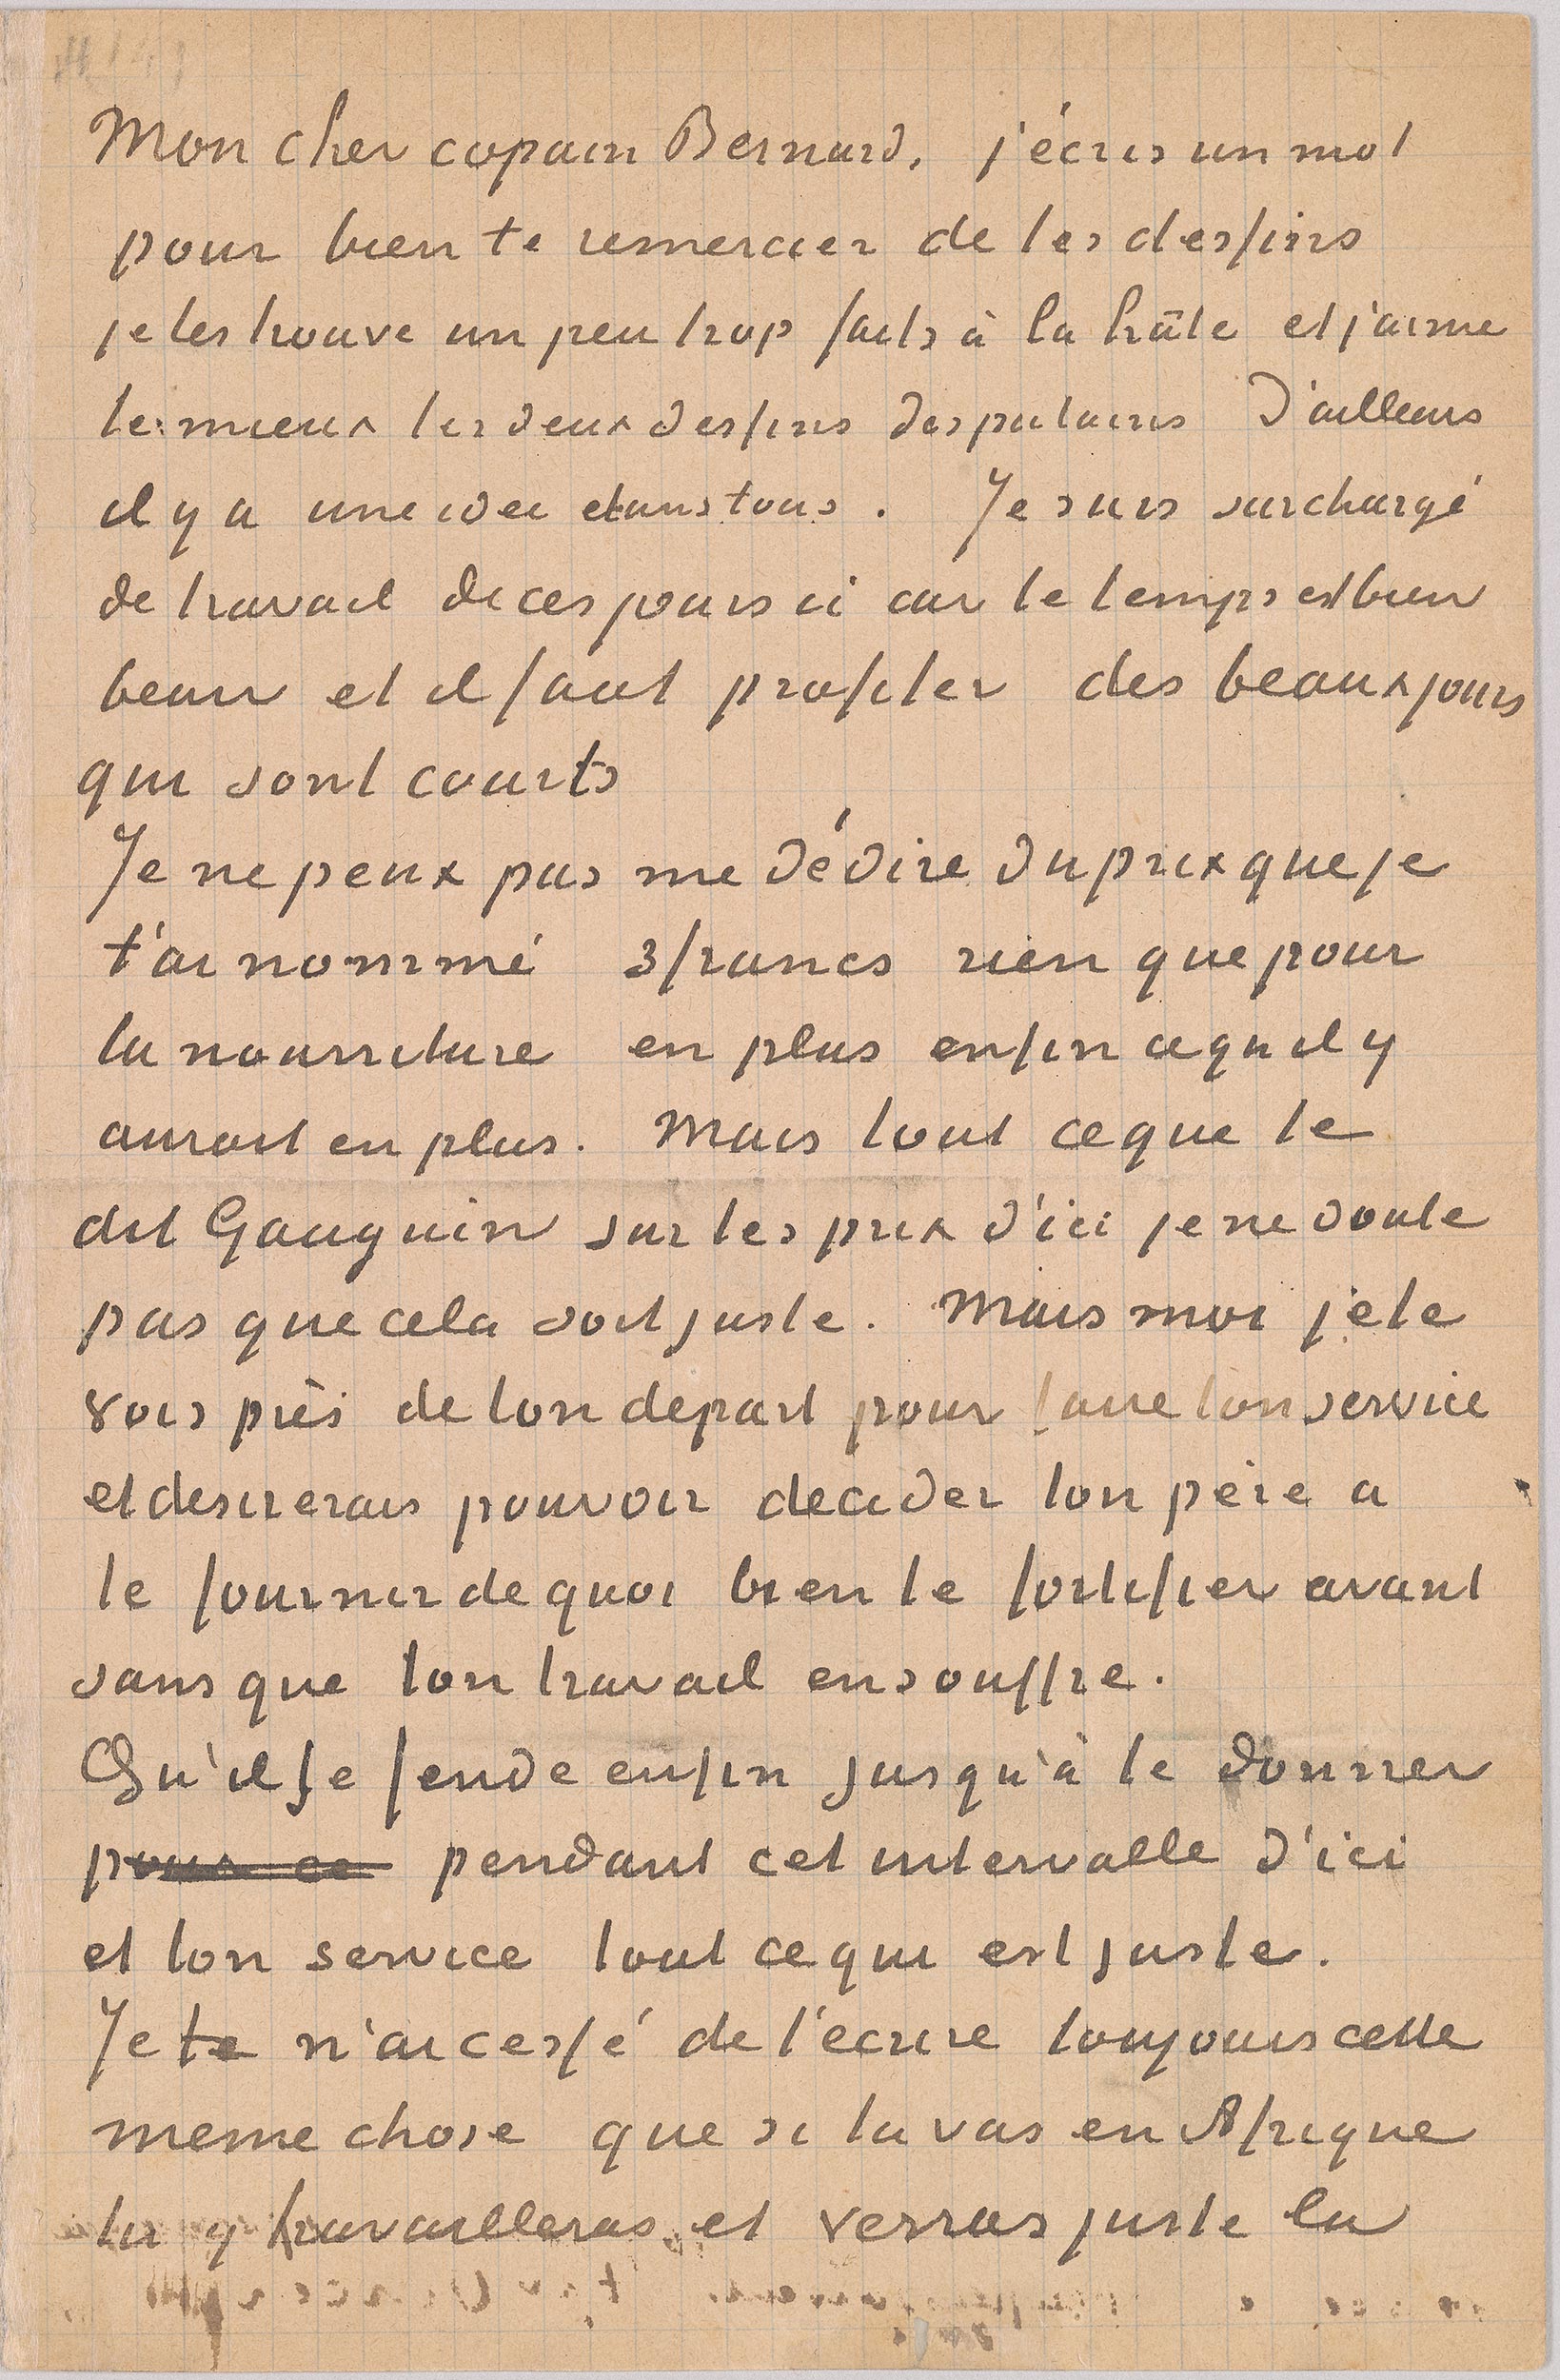 Mon cher copain Bernard, j'écris un mot
pour bien te remercier de tes dessins
je les trouve un peu trop faits à la hâte et j'aime
le mieux les deux dessins des putains D'ailleurs
il y a une idée dans tous. Je suis surchargé
de travail de ces jours ci car le temps est bien
beau et il faut profiter des beaux jours
qui sont courts
Je ne peux pas me dédire du prix que je
t'ai nommé 3 francs rien que pour
la nourriture en plus enfin ce qu'il y
aurait en plus. Mais tout ce que te
dit Gauguin sur les prix d'ici je ne doute
pas que cela soit juste. Mais moi je te
vois près de ton depart pour faire ton service
et desirerais pouvoir decider ton père a
te fournir de quoi bien te fortifier avant
sans que ton travail en souffre.
Qu'il se fende enfin jusqu'à te donner
pour ce pendant cet intervalle d'ici
et ton service tout ce qui est juste.
Je te n'ai cessé de t'ecrire toujours cette
meme chose que si tu vas en Afrique
tu y travailleras et verras juste la